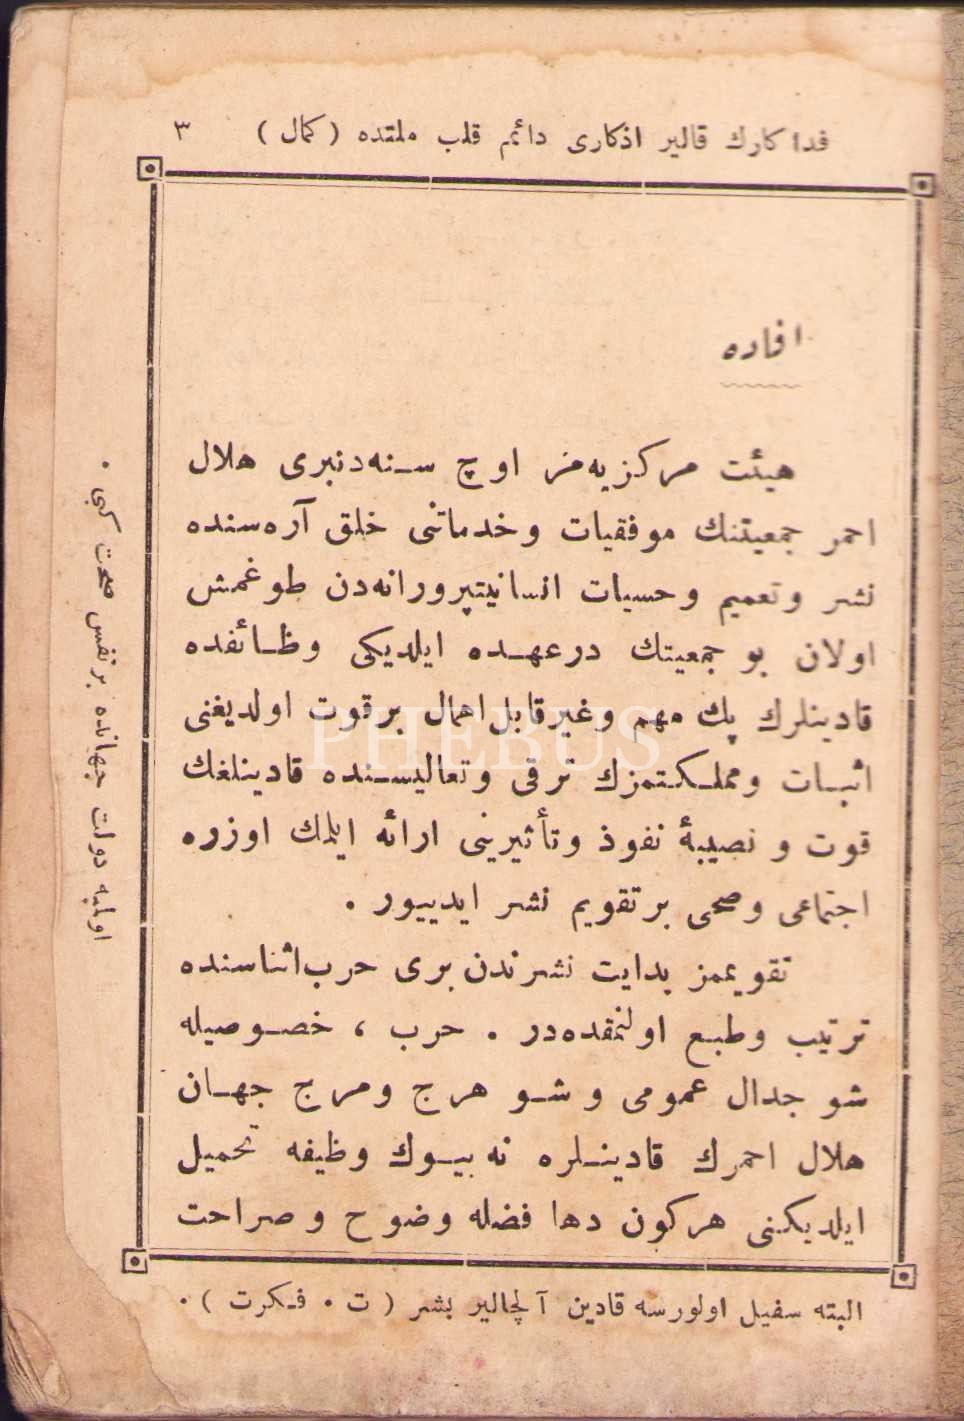 فداكارك قالير اذكارى دائم قلب ملتده (كمال) ٣
افاده
هيئت مركزيه‌مز اوچ سنه‌دنبرى هلال
احمر جمعيتنك موفقيات وخدماتنى خلق آره‌سنده
نشر وتعميم وحسيات انسانيتپرورانه‌دن طوغمش
اولان بو جمعيتك درعهده ايلديكى وظائفده
قادينلرك پك مهم وغيرقابل اهمال برقوت اولديغنى
اثبات ومملكتمزك ترقى وتعاليسنده قادينلغك
قوت و نصيبۀ نفوذ وتأثيرينى ارائه ايلمك اوزره
اجتماعى وصحى برتقويم نشر ايدييور .
تقويممز بدايت نشرندن برى حرب اثناسنده
ترتيب وطبع اولنمقده‌در . حرب ، خصوصيله
شو جدال عمومى و شو هرج ومرج جهان
هلال احمرك قادينلره نه بيوك وظيفه تحميل
ايلديكنى هركون دها فضله وضوح و صراحت
البته سفيل اولورسه قادين آلچالير بشر (ت . فكرت) .
اولميه دولت جهانده برنفس صحت كبى .
PHEBUS